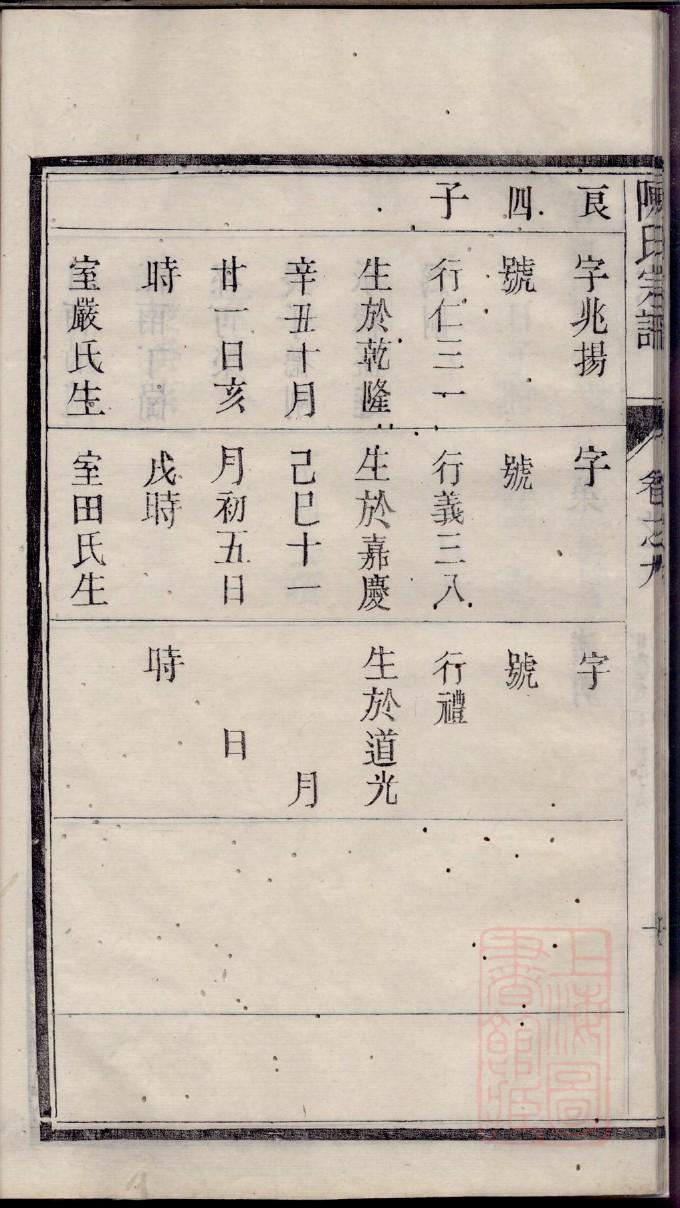 陳氏宗譜
卷之九
良四子
字兆揚
號
行仁三一
生於乾隆
辛丑十月
廿一日亥
時
室嚴氏生
字
號
行義三八
生於嘉慶
己巳十一
月初五日
戌時
室田氏生
字
號
行禮
生於道光
月
日
時
上海圖
書館藏